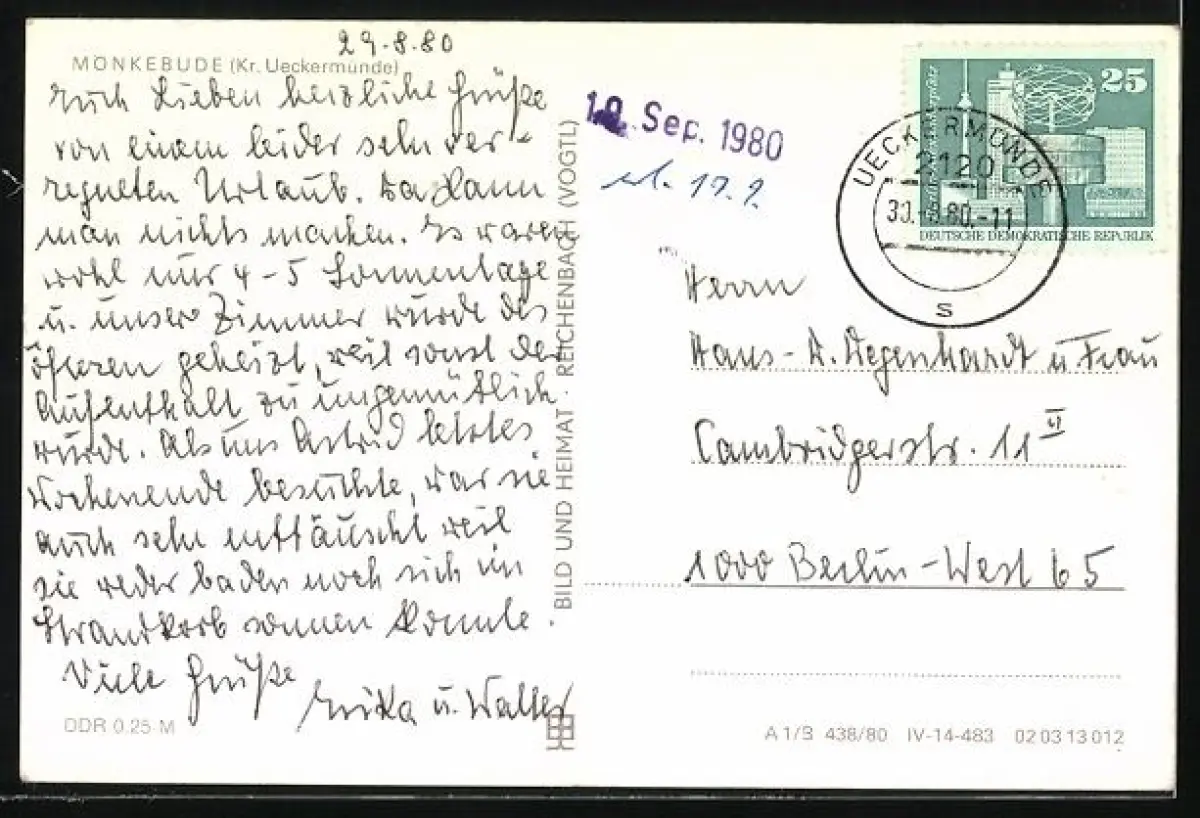 29.8.80
MÖNKEBUDE (Kr. Ueckermünde)
Euch Lieben herzliche Grüße
von einem leider sehr ver-
regneten Urlaub. Da kann
man nichts machen. Es waren
wohl nur 4-5 Sonnentage
u. unser Zimmer wurde des
öfteren geheizt, weil sonst der
Aufenthalt zu ungemütlich
würde. Als uns Astrid letztes
Wochenende besuchte, war sie
auch sehr enttäuscht weil
sie weder baden noch sich im
Strandkorb sonnen konnte.
Viele Grüße
Erika u. Walter
DDR 0.25 M
BILD UND HEIMAT · REICHENBACH (VOGTL)
Sep. 1980
25
DEUTSCHE DEMOKRATISCHE REPUBLIK
UECKERMÜNDE
2120
30.-8.80.-11
s
Herrn
Hans-D. Degenhardt u Frau
Cambridgerstr. 11 VI
1000 Berlin-West 65
A 1/B 438/80 IV-14-483 02 03 13 012